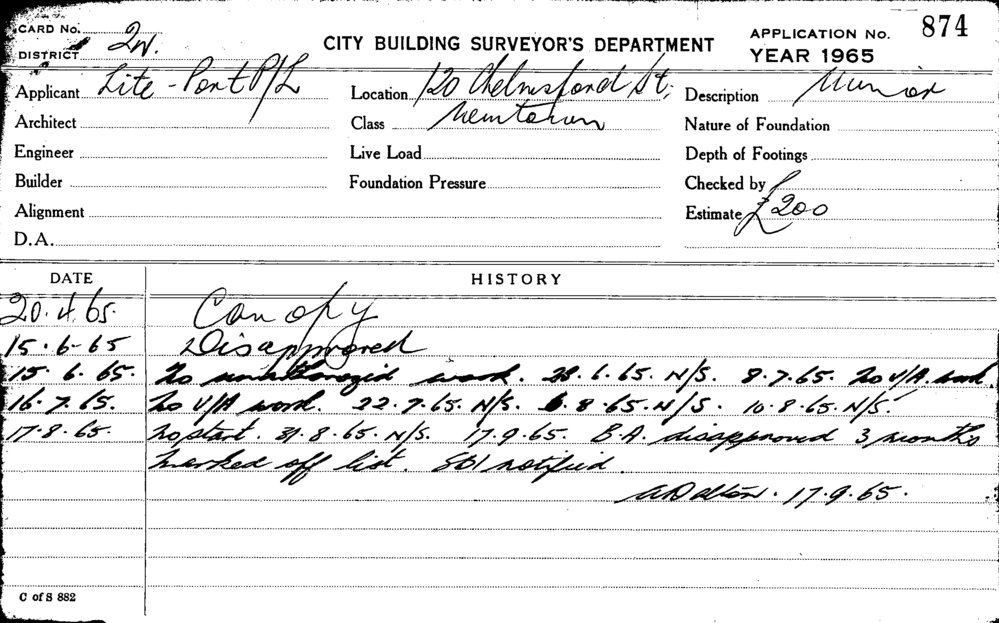 CARD No.
874
DISTRICT 2W.
CITY BUILDING SURVEYOR'S DEPARTMENT
APPLICATION No.
YEAR 1965
Applicant Lite-Port P/L
Location 120 Chelmsford St,
Description Minor
Architect
Class Newtown
Nature of Foundation
Engineer
Live Load
Depth of Footings
Builder
Foundation Pressure
Checked by
Alignment
Estimate £200
D.A.
DATE
HISTORY
20.4.65. Canopy
15.6-65 Disapproved
15.6.65. No unauthorozid work. 28.6.65. N/S. 8.7.65. No U/A. work.
16.7.65. No U/A work. 22.7.65. N/S. 6.8.65. N/S. 10.8.65. N/S.
17.8.65. No start. 31.8.65. N/S. 17.9.65. B.A. disapproved 3 months
marked off list. SBI notified.
A Dalton. 17.9.65.
C of S 882